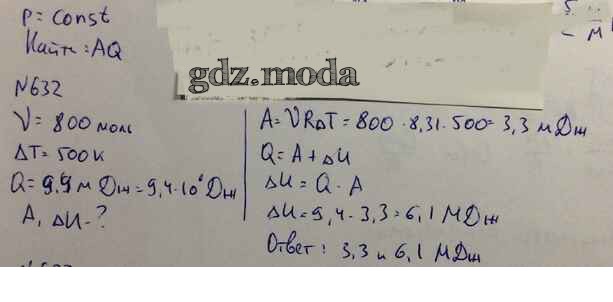 p = const
Найти: AQ
gdz.moda
N632
ν = 800 моль
ΔT = 500 К
Q = 9,9 м Дж = 9,4·10⁶ Дж
A, ΔU - ?
A = νRΔT = 800 · 8,31 · 500 = 3,3 мДж
Q = A + ΔU
ΔU = Q - A
ΔU = 9,4 - 3,3 = 6,1 МДж
Ответ: 3,3 и 6,1 МДж